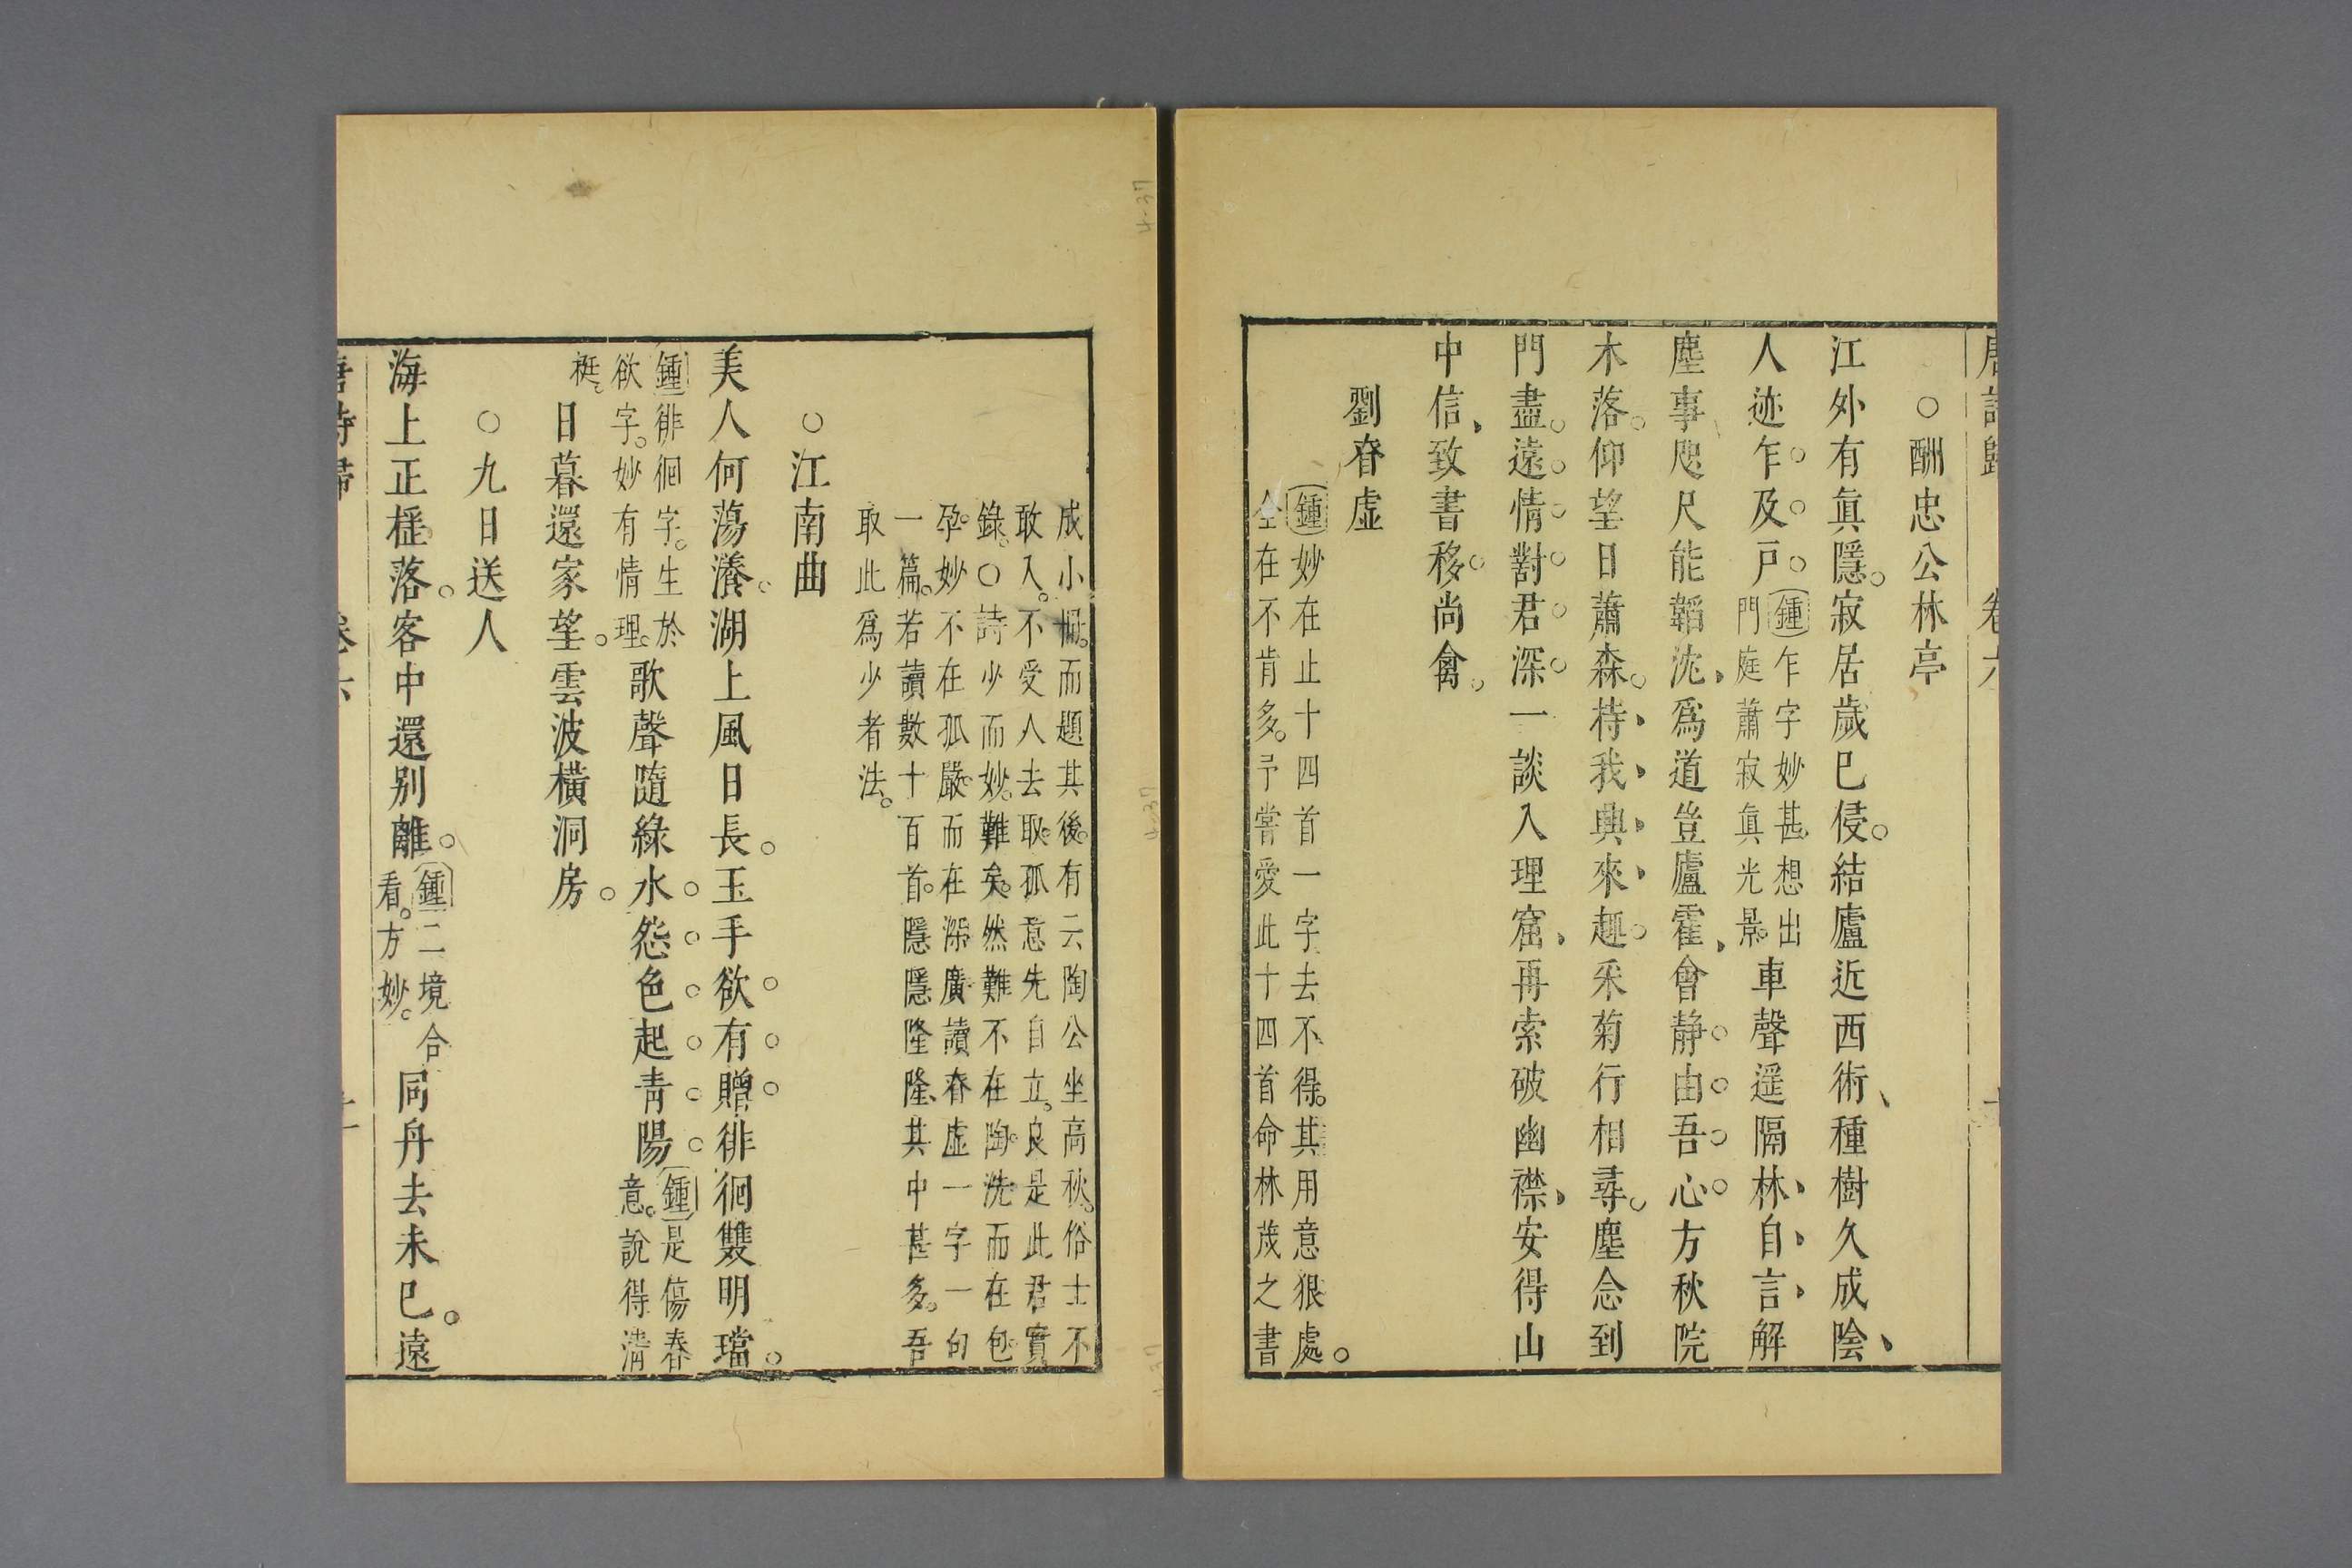 唐詩歸　卷六
○酬忠公林亭
江外有眞隱。寂居歲巳侵。結廬近西術、種樹久成陰、
人迹乍及戸
鍾乍字妙甚想出
門庭蕭寂眞光景
車聲遥隔林、自言解
塵事咫尺能韜沈、爲道豈廬霍、會靜由吾心方秋院
木落。仰望日蕭森。待我興來趣。采菊行相尋。塵念到
門盡遠情對君深一談入理窟、再索破幽襟、安得山
中信、致書移尚禽。
劉眘虛
鍾妙在止十四首一字去不得。其用意狠處。
全在不肯多。予嘗愛此十四首命林茂之書
成小幅。而題其後。有云陶公坐高秋。俗士不
敢入。不受人去取。孤意先自立。良是此君實
錄。○詩少而妙。難矣。然難不在陶洗而在包
孕。妙不在孤嚴。而在深廣讀眘虛一字一句
一篇。若讀數十百首。隱隱隆隆其中甚多。吾
取此爲少者法。
○江南曲
美人何蕩漾。湖上風日長。玉手欲有贈徘徊雙明璫。
鍾徘徊字。生於
欲字。妙有情理。
歌聲隨綠水怨色起靑陽
鍾是傷春
意。說得淸
挺。
日暮還家望。雲波橫洞房。
○九日送人
海上正搖落。客中還別離。
鍾二境合
看。方妙。
同舟去未巳。遠
唐詩歸　卷六